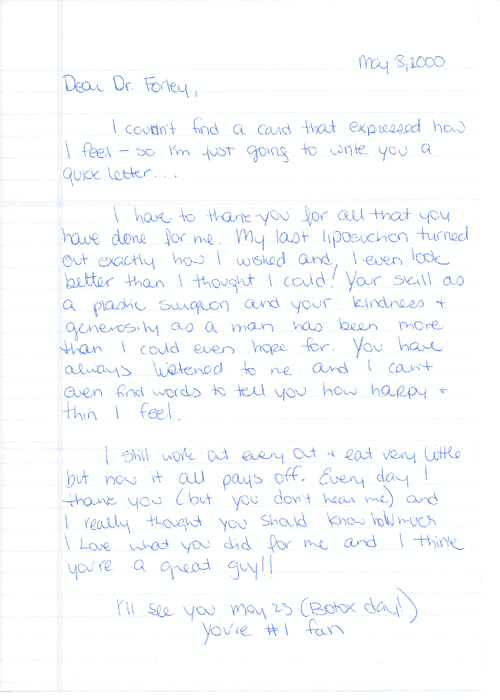 May 8, 2000
Dear Dr. Forley,
I couldn't find a card that expressed how
I feel - so I'm just going to write you a
quick letter...
I have to thank-you for all that you
have done for me. My last liposuction turned
out exactly how I wished and, I even look
better than I thought I could! Your skill as
a plastic surgeon and your kindness +
generosity as a man has been more
than I could even hope for. You have
always listened to me and I can't
even find words to tell you how happy +
thin I feel.
I still work out every + eat very little
but now it all pays off. Every day I
thank you (but you don't hear me) and
I really thought you should know how much
I Love what you did for me and I think
you're a great guy!!
I'll see you May 23 (Botox day!)
You're #1 fan